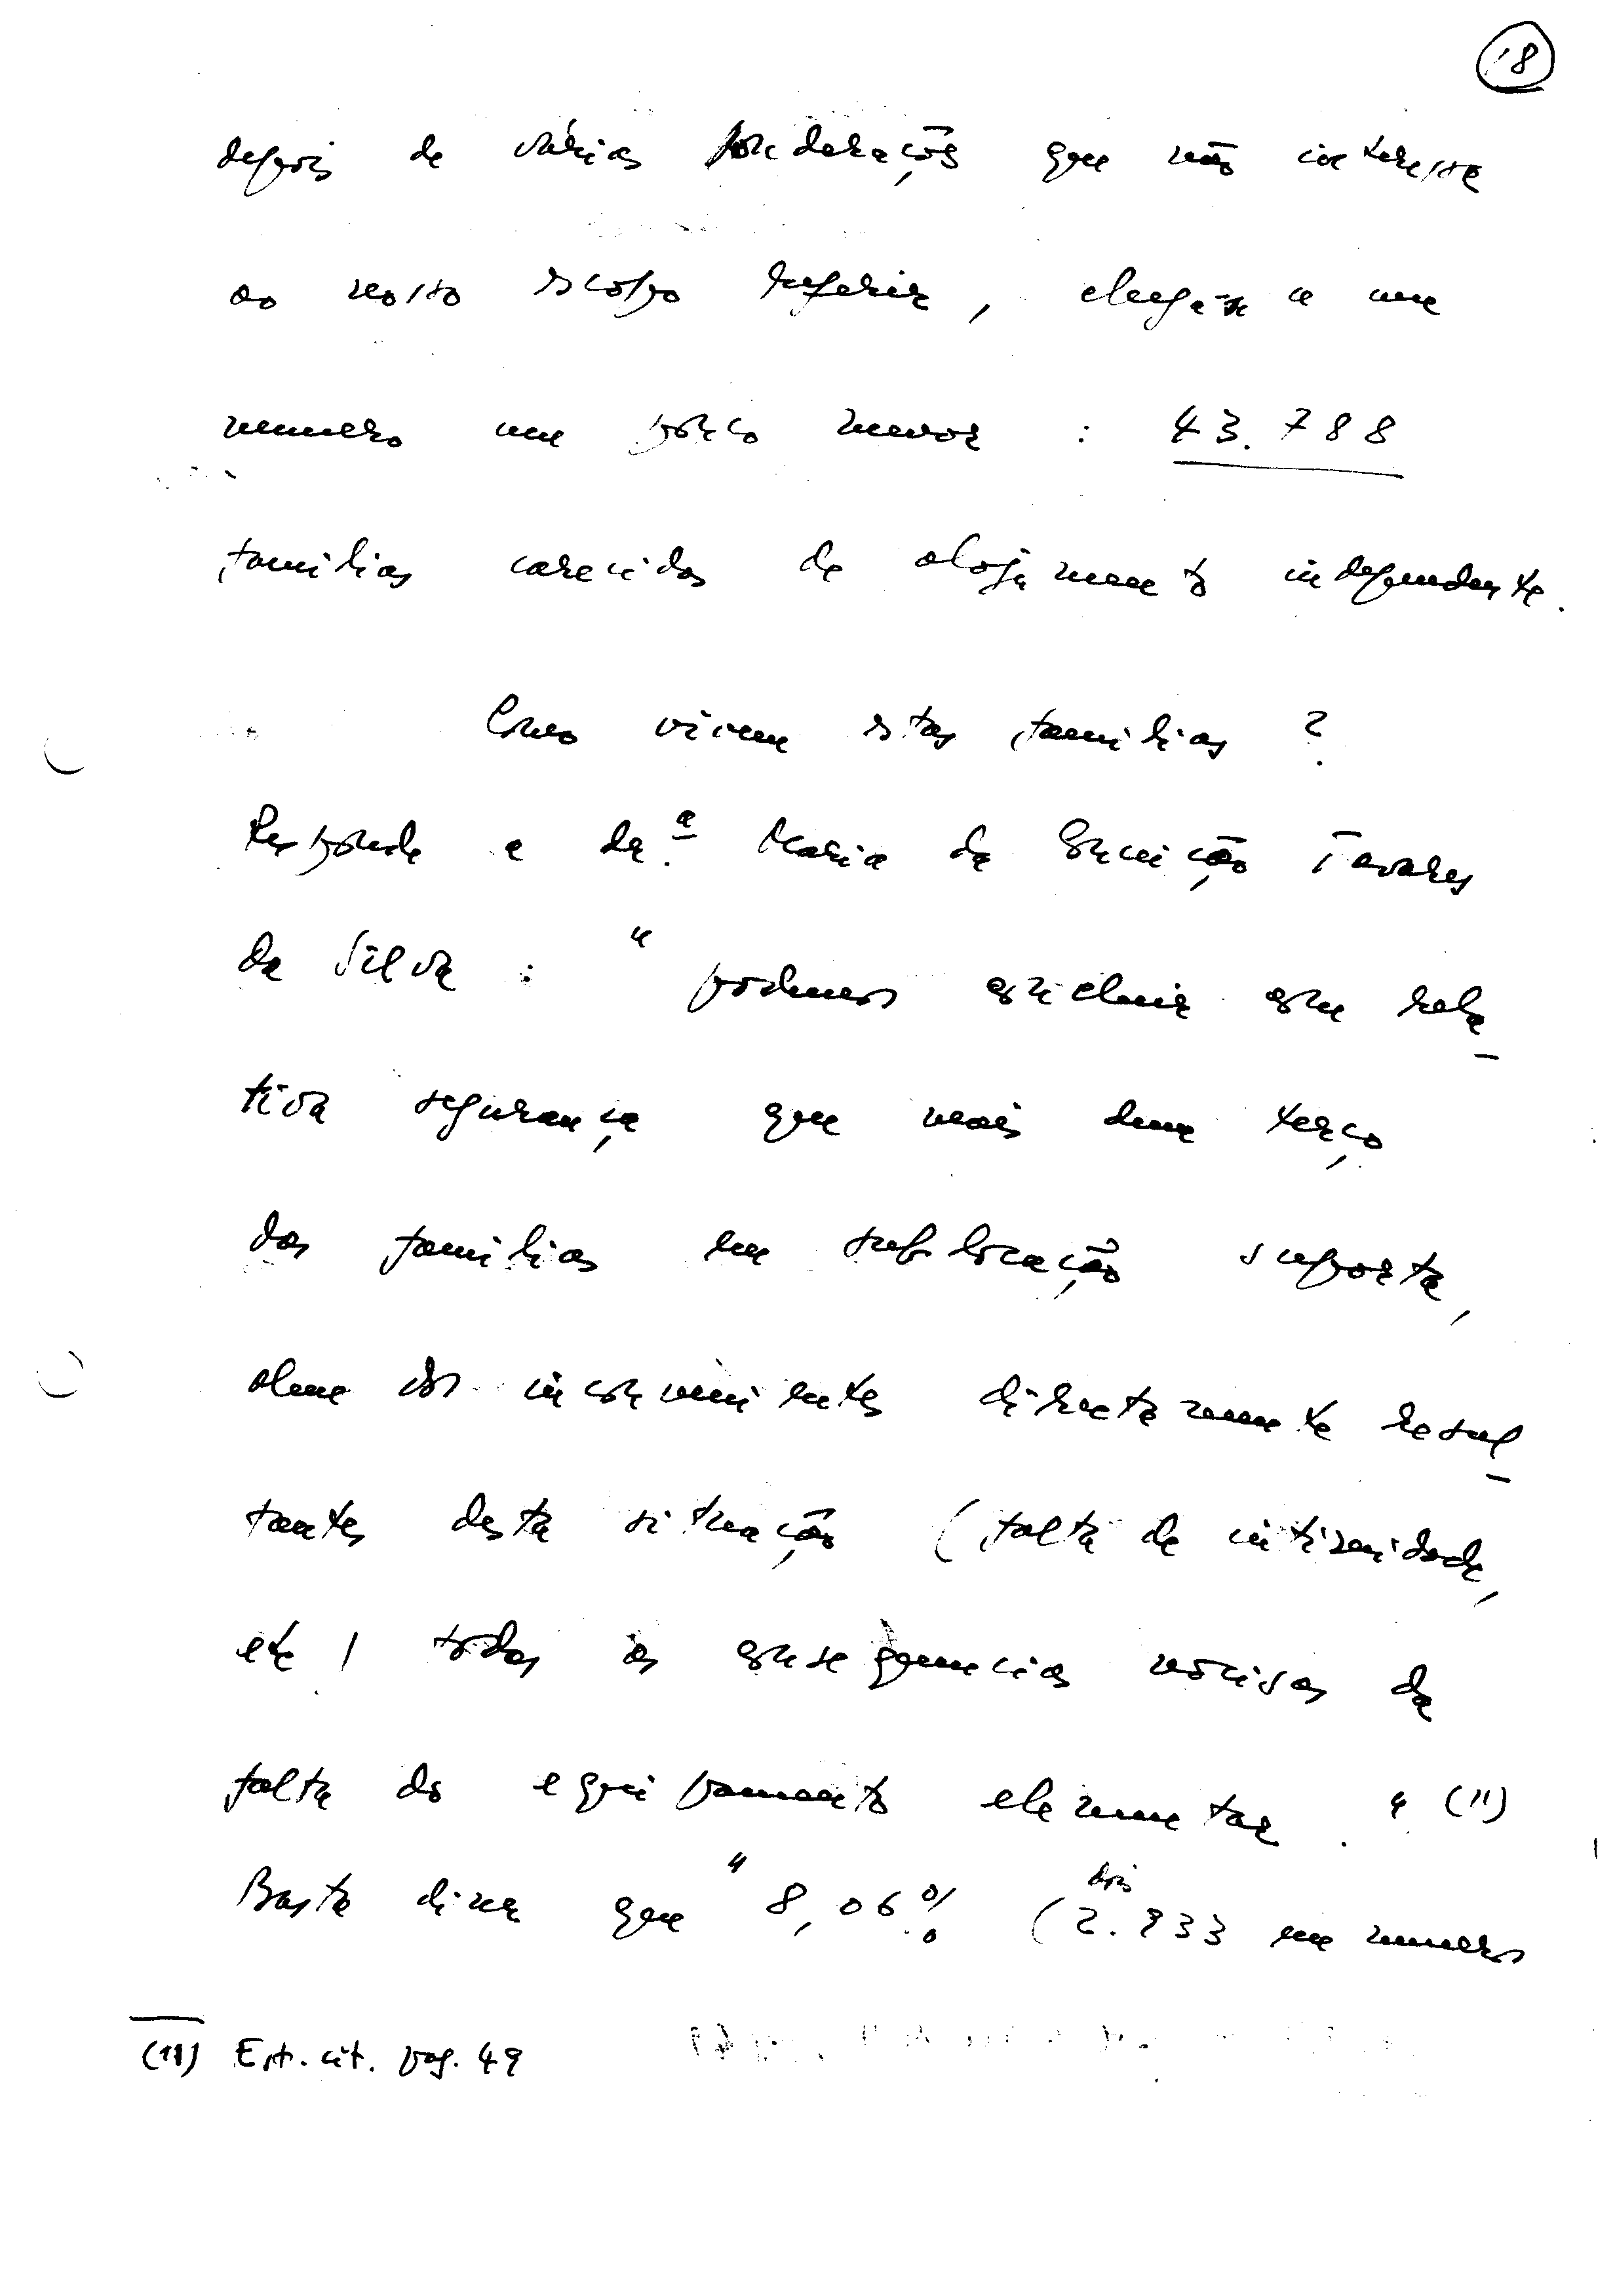 18
depois de várias ponderações que não interessa
ao nosso escopo referir, chega-se a um
numero um pouco menor : 43.788
familias carecidas de alojamento independente.
Como vivem estas familias ?
Responde a dr.ª Maria da Conceição Tavares
da Silva : " podemos concluir com rela-
tiva segurança que mais duma terço
das familias em sublocação suporta,
alem dos inconvenientes directamente resul-
tantes desta situação ( falta de intimidade,
etc ) todas as consequencias nocivas da
falta do equipamento elementar . " (11)
dois
Basta dizer que " 8,06% ( 2.933 em numero
(11) Est. cit. pag. 49